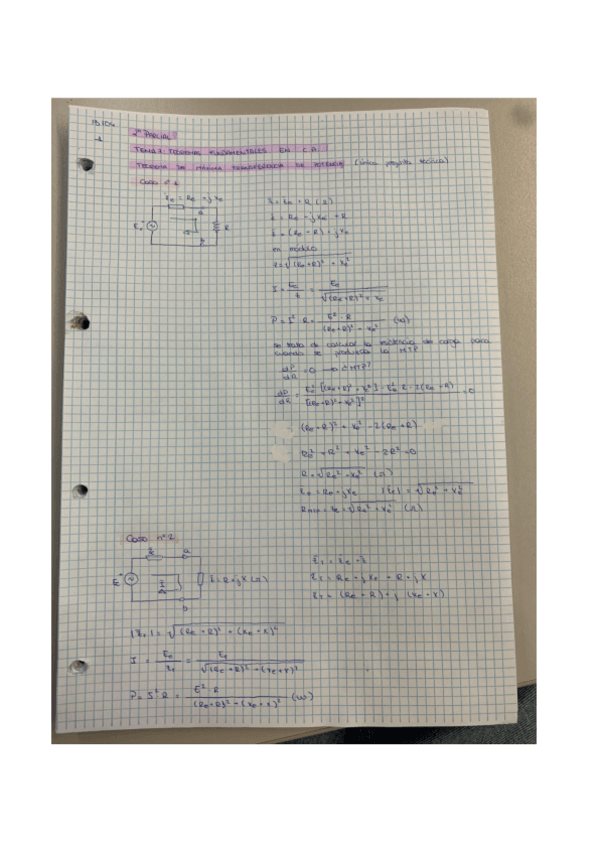 2º PARCIAL
TEMA 7: TEOREMAS FUNDAMENTALES EN C.A.
TEOREMA DE MÁXIMA TRANSFERENCIA DE POTENCIA (única pregunta teórica)
Caso nº 1
Ze = Re + j Xe
R
Z = Ze + R (Ω)
Z = Re + j Xe + R
Z = (Re + R) + j Xe
en módulo
Z = √(Re+R)² + Xe²
I = Ee / Z = Ee / √(Re+R)² + Xe
P = I² R = E² · R / (Re+R)² + Xe² (W)
se trata de calcular la resistencia de carga para
cuando se produzca la MTP
dP/dR = 0 → ¿MTP?
dP/dR = Ee² [(Re+R)² + Xe²] - Ee² R · 2(Re+R) / [(Re+R)² + Xe²]² = 0
(Re+R)² + Xe² - 2(Re+R)
Re² + R² + Xe² - 2R² = 0
R = √Re² + Xe² (Ω)
Ze = Re + jXe |Ze| = √Re² + Xe²
Rmtp = Ze = √Re² + Xe² (Ω)
Caso nº 2
Ze a
E I Z = R + jX (Ω)
b
ZT = Ze + Z
ZT = Re + j Xe + R + j X
ZT = (Re + R) + j (Xe + X)
|ZT| = √(Re + R)² + (Xe + X)²
I = Ee / ZT = Ee / √(Re + R)² + (Xe + X)²
P = I² R = E² · R / (Re+R)² + (Xe + X)² (W)